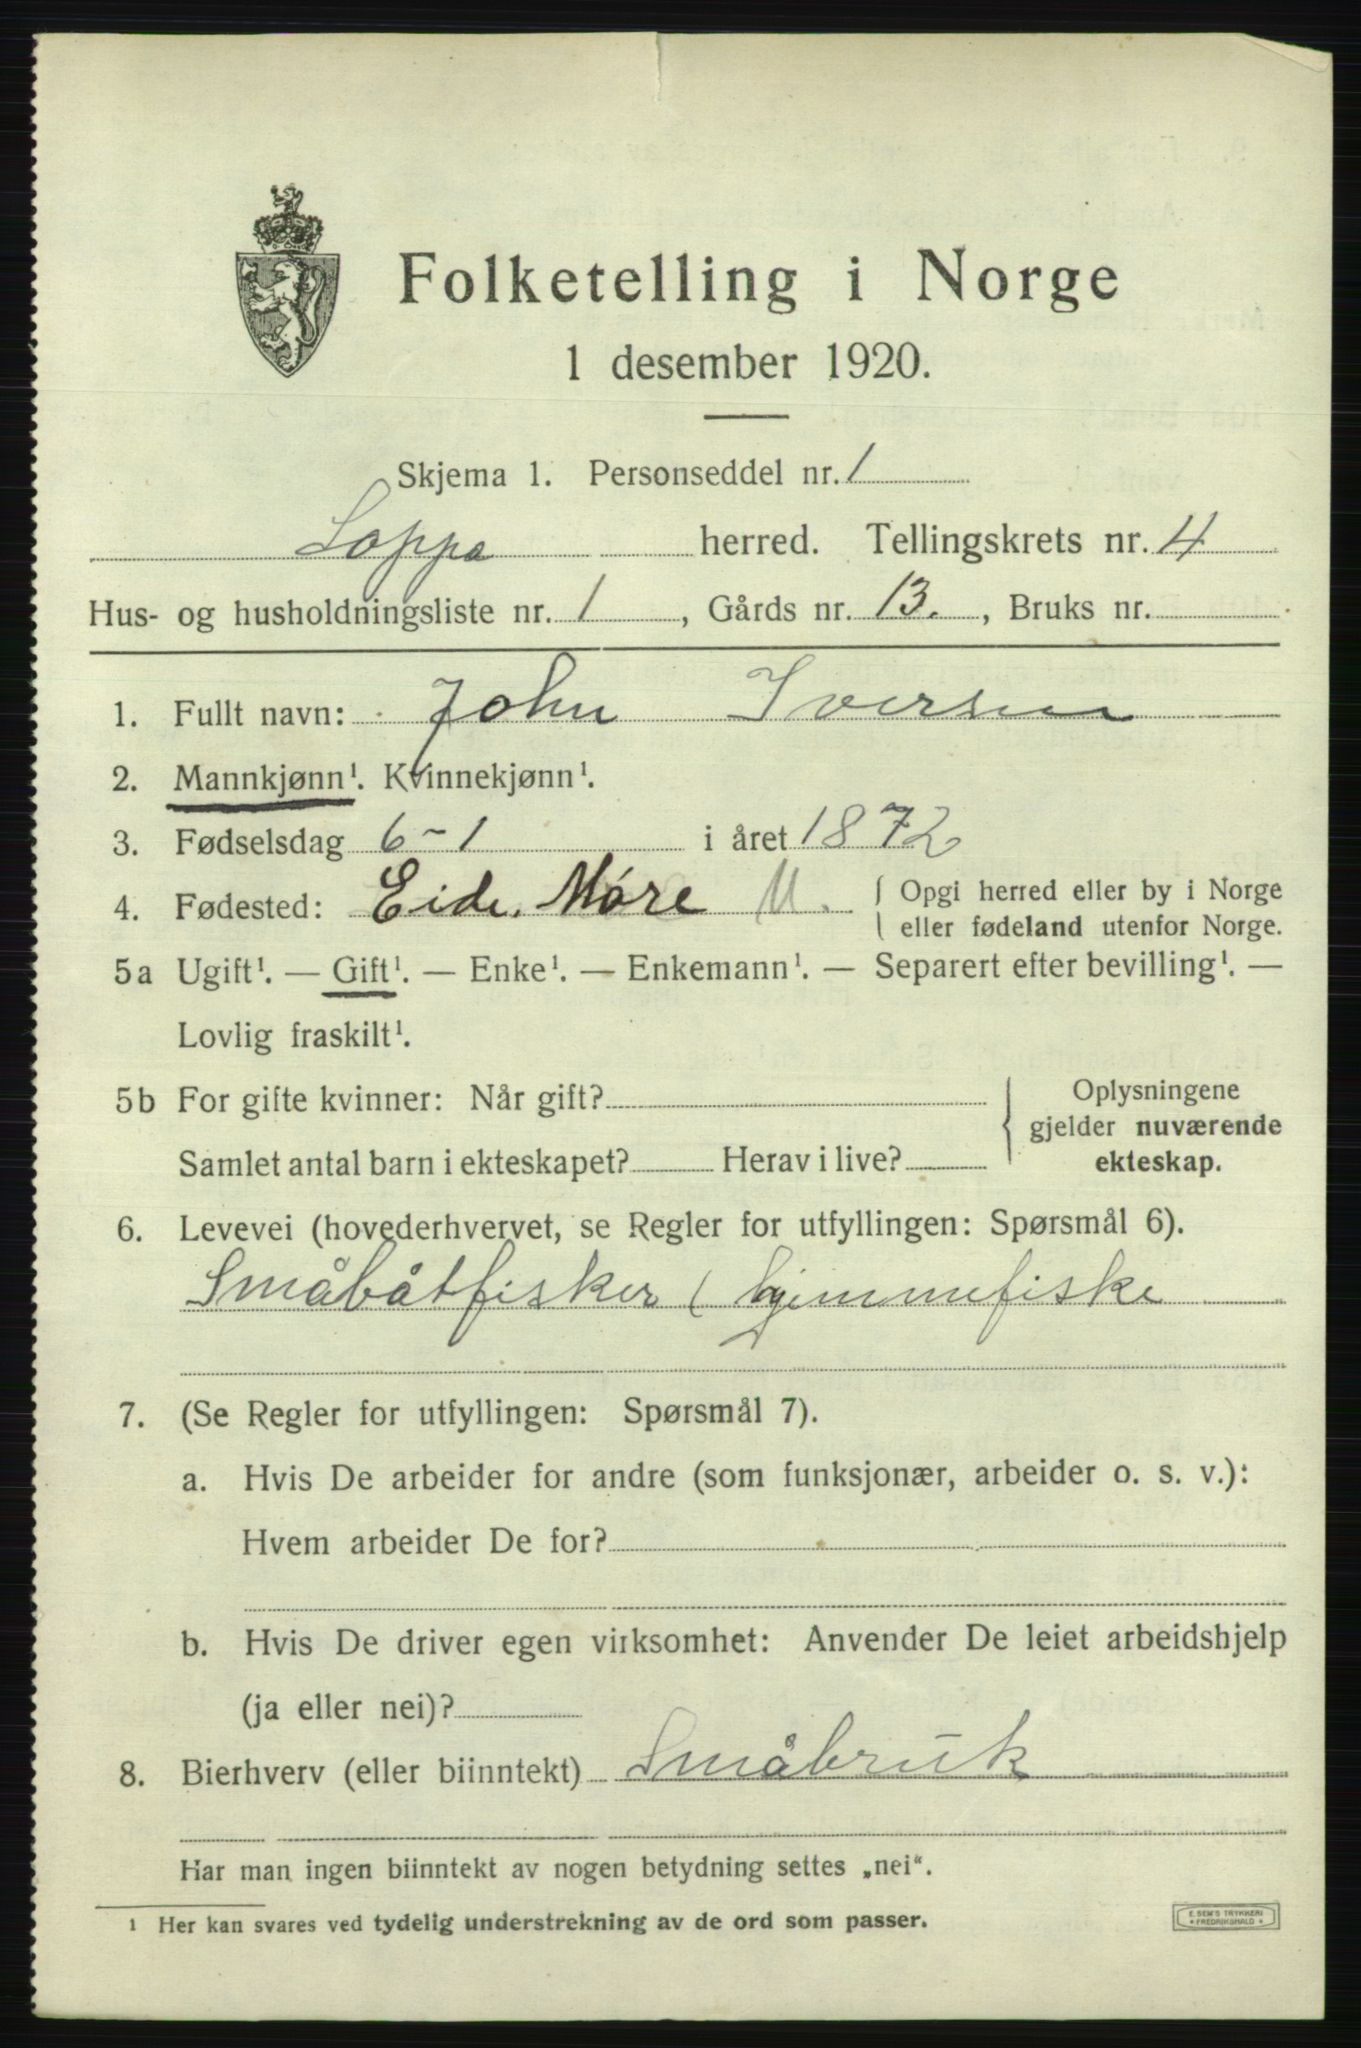 Folketelling i Norge
1 desember 1920.
Skjema 1. Personseddel nr. 1
Loppa herred. Tellingskrets nr. 4
Hus- og husholdningsliste nr. 1, Gårds nr. 13., Bruks nr.
1. Fullt navn: John Iversen
2. Mannkjønn¹. Kvinnekjønn¹.
3. Fødselsdag 6-1 i året 1872
4. Fødested: Eide. Møre U. { Opgi herred eller by i Norge
eller fødeland utenfor Norge.
5a Ugift¹. — Gift¹. — Enke¹. — Enkemann¹. — Separert efter bevilling¹. —
Lovlig fraskilt¹.
5b For gifte kvinner: Når gift? { Oplysningene
gjelder nuværende
Samlet antal barn i ekteskapet? Herav i live? ekteskap.
6. Levevei (hovederhvervet, se Regler for utfyllingen: Spørsmål 6).
Småbåtfisker ( hjemmefiske
7. (Se Regler for utfyllingen: Spørsmål 7).
a. Hvis De arbeider for andre (som funksjonær, arbeider o. s. v.):
Hvem arbeider De for?
b. Hvis De driver egen virksomhet: Anvender De leiet arbeidshjelp
(ja eller nei)?
8. Bierhverv (eller biinntekt) Småbruk
Har man ingen biinntekt av nogen betydning settes „nei“.
¹ Her kan svares ved tydelig understrekning av de ord som passer.
E. SEM'S TRYKKERI
* FREDRIKSHALD *